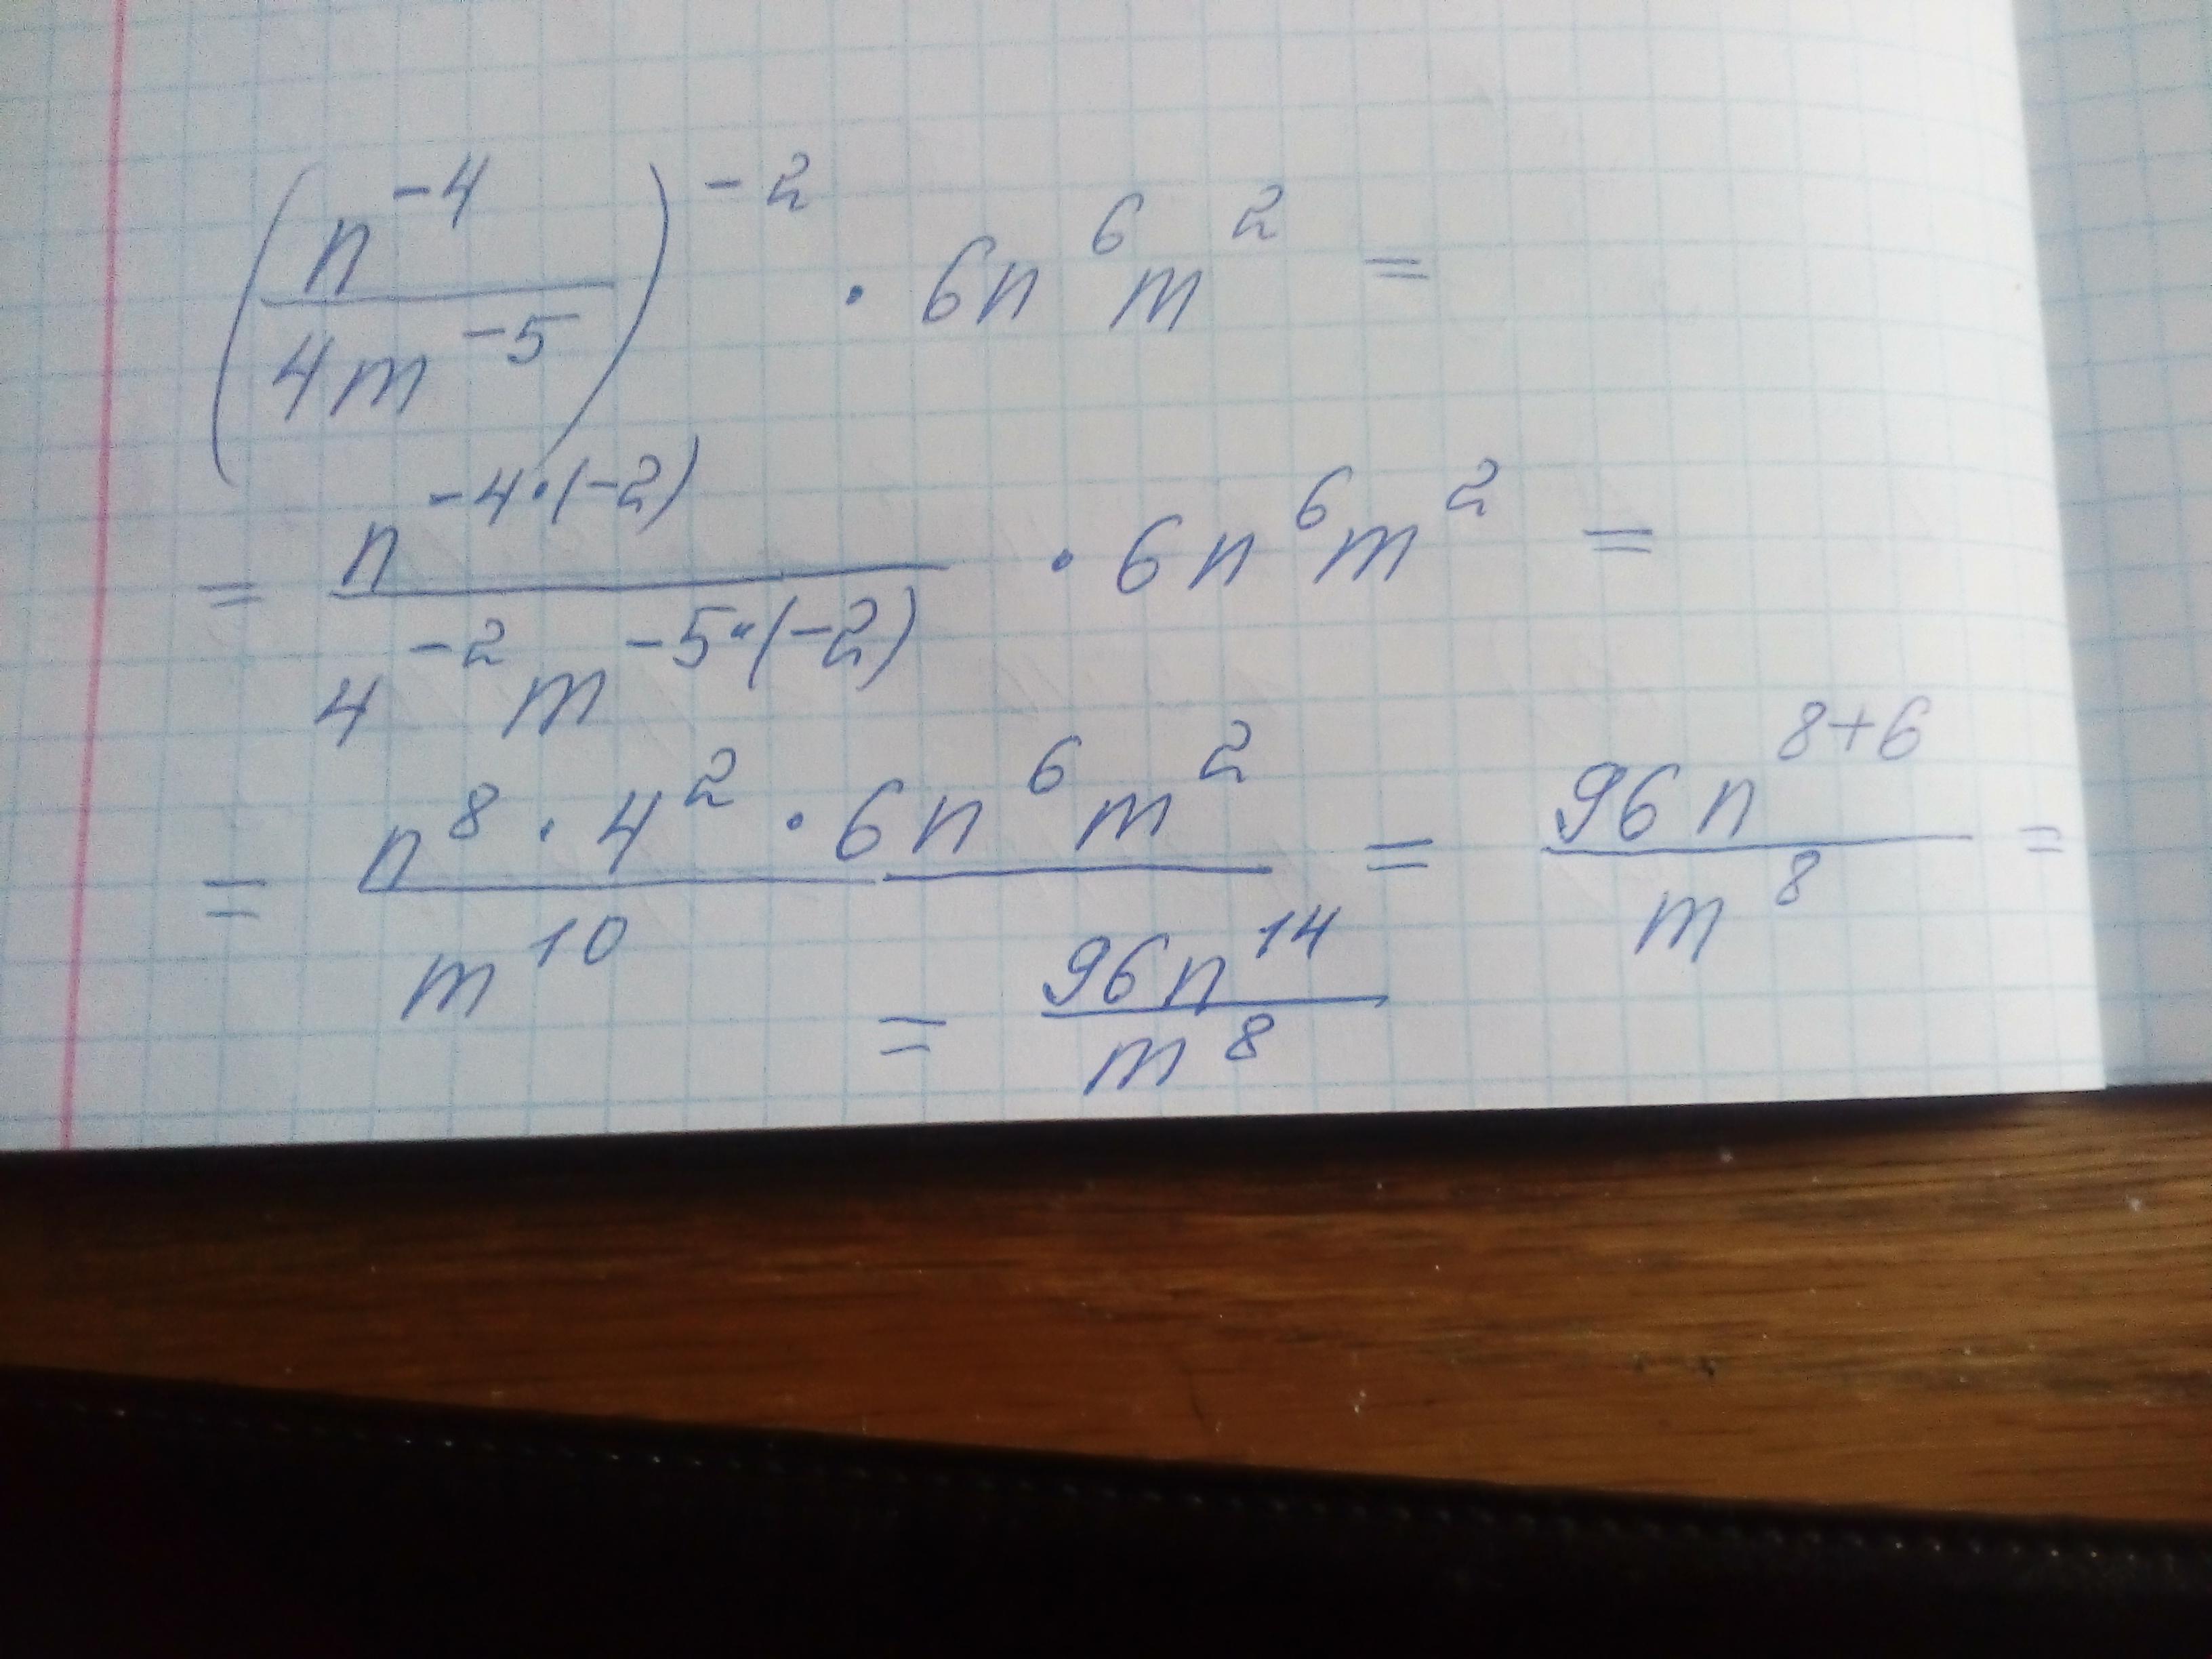 (n^-4 / 4m^-5)^-2 · 6n^6 m^2 =
= n^-4·(-2) / 4^-2 m^-5·(-2) · 6n^6 m^2 =
= n^8 · 4^2 · 6n^6 m^2 / m^10 = 96n^8+6 / m^8 =
= 96n^14 / m^8